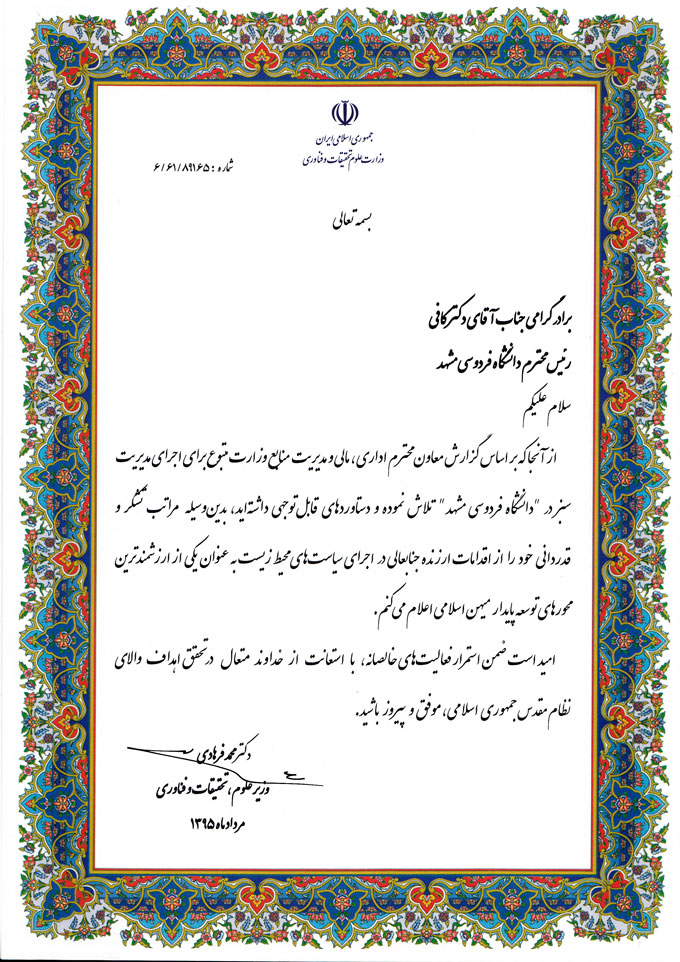 جمهوری اسلامی ایران
وزارت علوم تحقیقات و فناوری
شماره : ۶/۶۱/۸۹۱۶۵
بسمه تعالی
برادر گرامی جناب آقای دکتر کافی
رئیس محترم دانشگاه فردوسی مشهد
سلام علیکم
از آنجا که بر اساس گزارش معاون محترم اداری، مالی و مدیریت منابع وزارت متبوع برای اجرای مدیریت
سبز در "دانشگاه فردوسی مشهد" تلاش نموده و دستاوردهای قابل توجهی داشته‌اید، بدین‌وسیله مراتب تشکر و
قدردانی خود را از اقدامات ارزنده جنابعالی در اجرای سیاست‌های محیط زیست به عنوان یکی از ارزشمندترین
محورهای توسعه پایدار میهن اسلامی اعلام می‌کنم.
امید است ضمن استمرار فعالیت‌های خالصانه، با استعانت از خداوند متعال در تحقق اهداف والای
نظام مقدس جمهوری اسلامی، موفق و پیروز باشید.
دکتر محمد فرهادی
وزیر علوم، تحقیقات و فناوری
مرداد ماه ۱۳۹۵